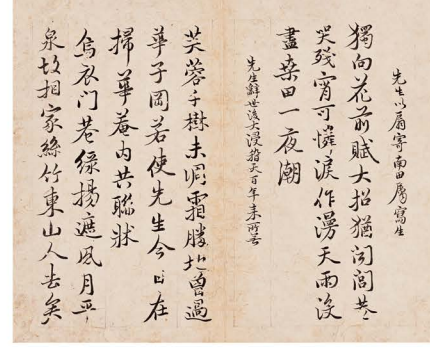 先生以扇寄南田屬寫生
獨向花前賦大招猶聞閶
哭殘宵可憐淚作漫天雨沒
盡桑田一夜潮
先生辭世後大漫指天百年未
芙蓉千樹未凋霜勝地曾過
華子岡若使先生今日在
掃華菴內共聯牀
烏衣門巷綠楊遮風月平
泉故相家絲竹東山人去矣